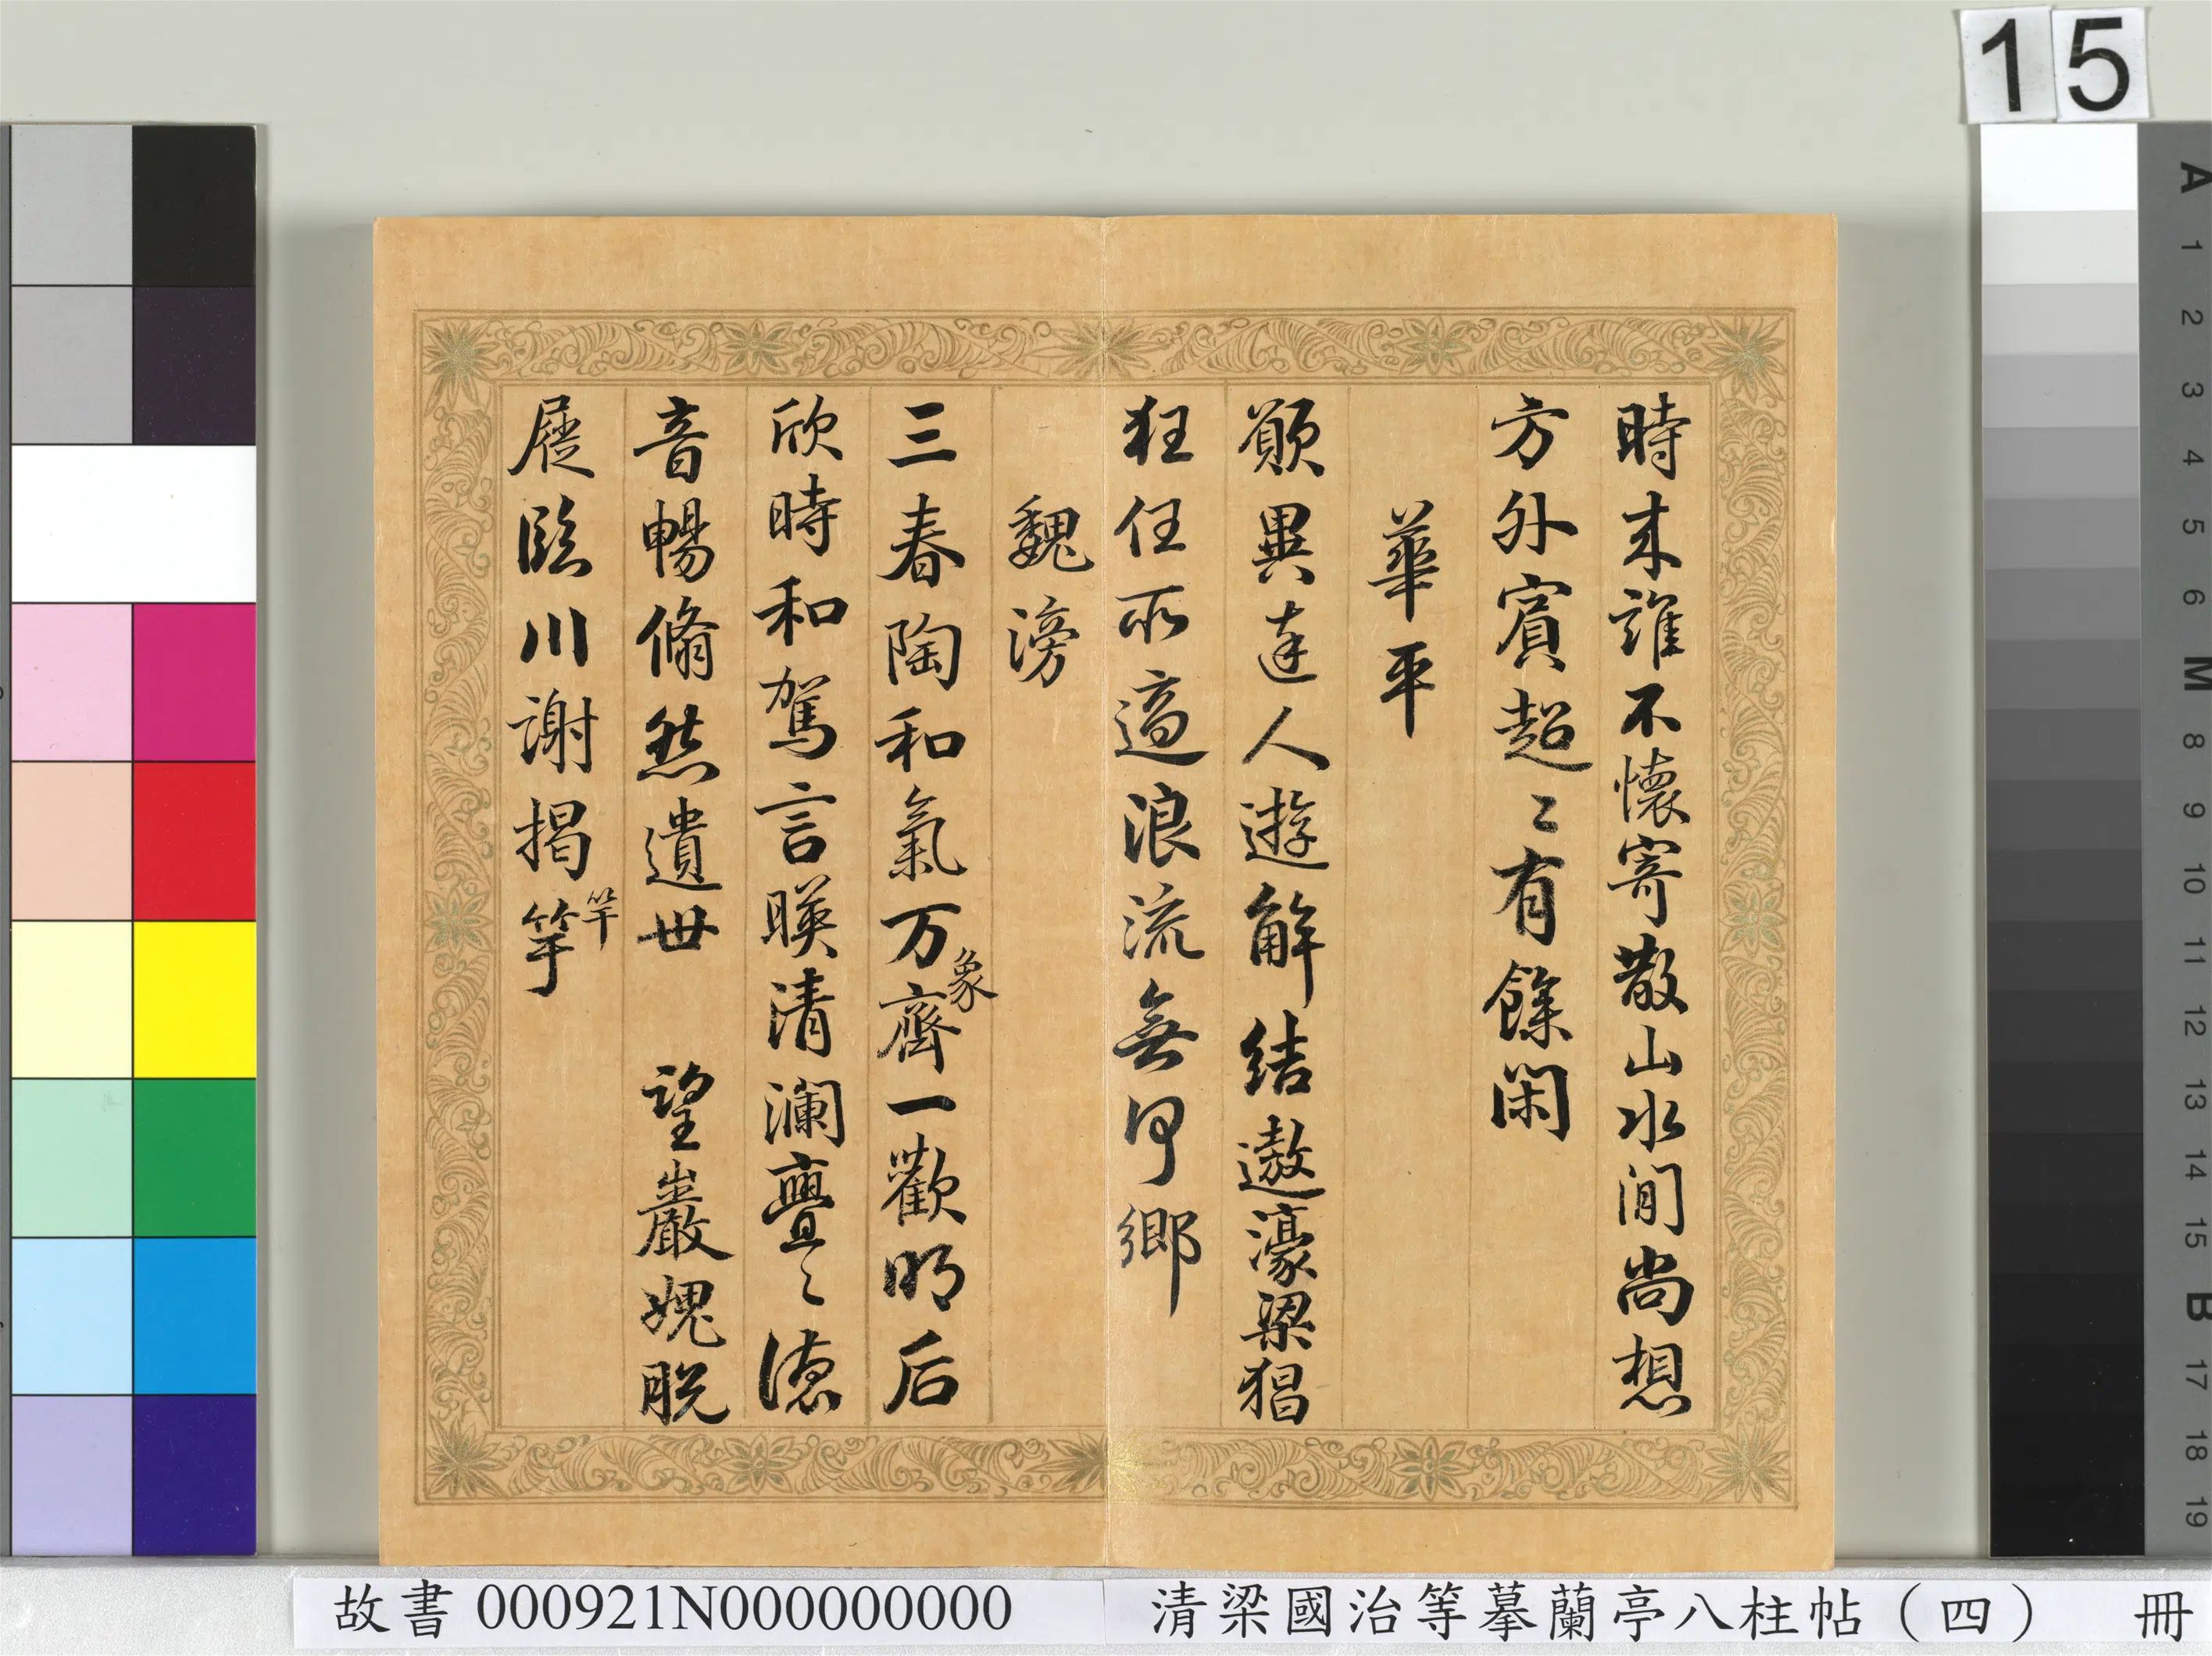 15
時来誰不懷寄散山水間尚想
方外賓超〻有餘閑
華平
願與達人遊解結遨濠梁狂
狂任所適浪流無何鄉
魏滂
三春陶和氣万齊一歡明后
象
欣時和駕言暎清瀾亹〻德
音暢脩然遺世 望巖愧脫
屣臨川謝揭竿
竿
A 1 2 3 4 5 6 M 8 9 10 11 12 13 14 15 B 17 18 19
故書 000921N000000000
清梁國治等摹蘭亭八柱帖(四) 冊